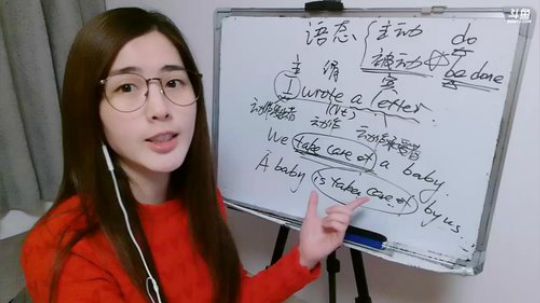 斗鱼
语态 { 主动 do
被动 be done
主 谓 宾
I wrote a letter.
动作发出者 (vt) 动作 动作承受者
We take care of a baby.
A baby is taken care of by us.